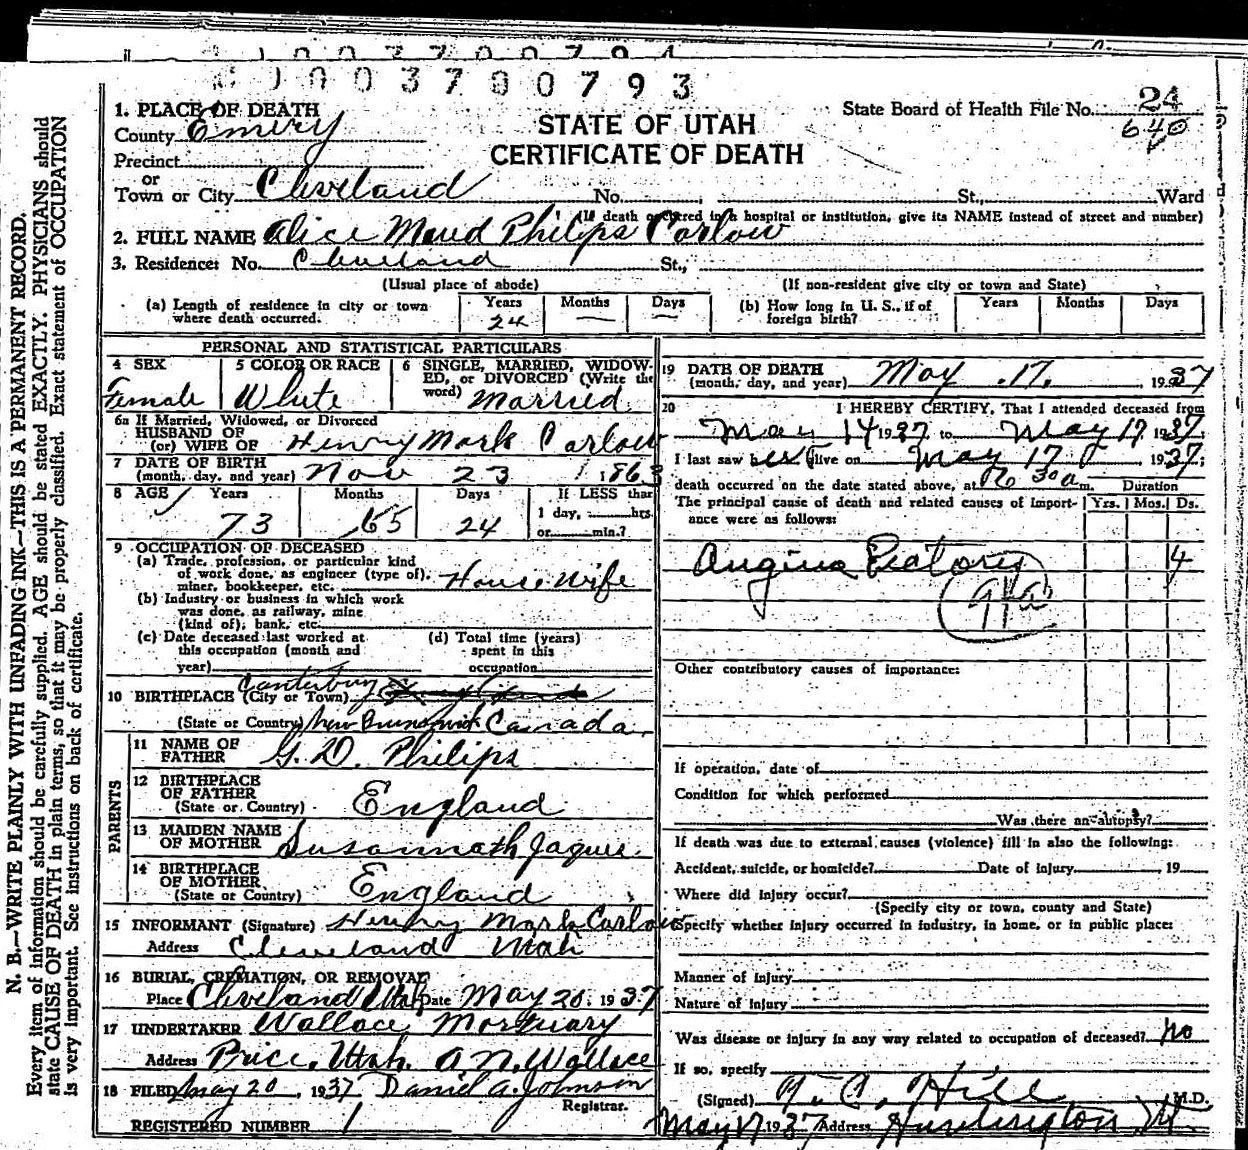 0003700794
0003700793
1. PLACE OF DEATH
County Emery
Precinct
or
Town or City Cleveland No. St., Ward
(If death occurred in a hospital or institution, give its NAME instead of street and number)
STATE OF UTAH
CERTIFICATE OF DEATH
State Board of Health File No. 24
640
2. FULL NAME Alice Maud Philips Carlow
3. Residence: No. Cleveland St.,
(Usual place of abode) (If non-resident give city or town and State)
(a) Length of residence in city or town where death occurred. Years 24 Months — Days —
(b) How long in U. S., if of foreign birth? Years Months Days
PERSONAL AND STATISTICAL PARTICULARS
4 SEX Female
5 COLOR OR RACE White
6 SINGLE, MARRIED, WIDOWED, or DIVORCED (Write the word) Married
6a If Married, Widowed, or Divorced
HUSBAND OF
(or) WIFE OF Henry Mark Carlow
7 DATE OF BIRTH
(month, day, and year) Nov 23 1863
8 AGE Years 73 Months 5 Days 24
If LESS than
1 day, hrs.
or min.?
9 OCCUPATION OF DECEASED
(a) Trade, profession, or particular kind
of work done, as engineer (type of),
miner, bookkeeper, etc. House Wife
(b) Industry or business in which work
was done, as railway, mine
(kind of), bank, etc.
(c) Date deceased last worked at
this occupation (month and
year)
(d) Total time (years)
spent in this
occupation
10 BIRTHPLACE (City or Town) Canterbury
(State or Country) New Brunswick Canada
PARENTS
11 NAME OF
FATHER G. D. Philips
12 BIRTHPLACE
OF FATHER
(State or Country) England
13 MAIDEN NAME
OF MOTHER Susannah Jaques
14 BIRTHPLACE
OF MOTHER
(State or Country) England
15 INFORMANT (Signature) Henry Mark Carlow
Address Cleveland Utah
16 BURIAL, CREMATION, OR REMOVAL
Place Cleveland Utah Date May 20. 1937
17 UNDERTAKER Wallace Mortuary
Address Price, Utah. A N. Wallace
18 FILED May 20, 1937 Daniel A. Johnson
Registrar.
REGISTERED NUMBER 1
19 DATE OF DEATH
(month, day, and year) May 17. 1937
20 I HEREBY CERTIFY, That I attended deceased from
May 14 1937 to May 17 1937.
I last saw her alive on May 17 1937;
death occurred on the date stated above, at 30 a m. Duration
The principal cause of death and related causes of importance were as follows: Yrs. Mos. Ds.
Angina Pectoris 4
Other contributory causes of importance:
If operation, date of
Condition for which performed
Was there an autopsy?
If death was due to external causes (violence) fill in also the following:
Accident, suicide, or homicide? Date of injury , 19
Where did injury occur?
(Specify city or town, county and State)
Specify whether injury occurred in industry, in home, or in public place:
Manner of Injury
Nature of Injury
Was disease or injury in any way related to occupation of deceased? No
If so, specify
(Signed) C. Hill M.D.
May 17 1937 Address Huntington Ut.
N. B.—WRITE PLAINLY WITH UNFADING INK—THIS IS A PERMANENT RECORD.
Every item of information should be carefully supplied. AGE should be stated EXACTLY. PHYSICIANS should
state CAUSE OF DEATH in plain terms, so that it may be properly classified. Exact statement of OCCUPATION
is very important. See instructions on back of certificate.